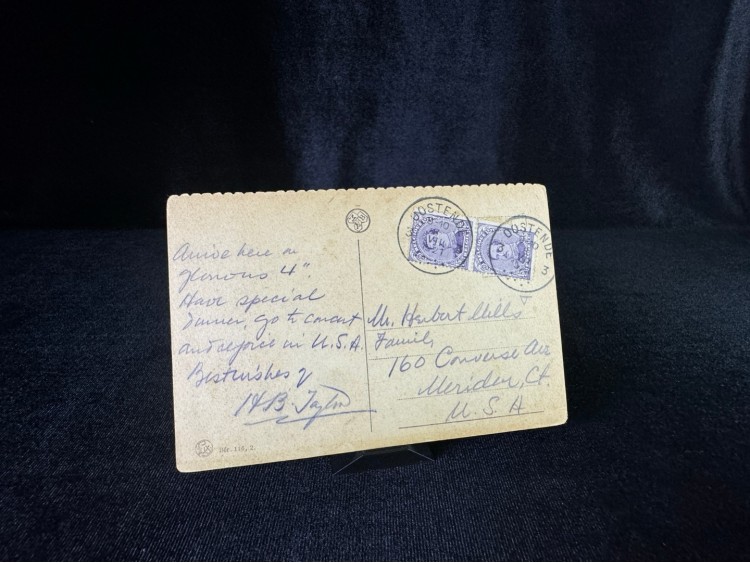 Arrive here on
glorious 4".
Have special
dinner, go to concert
and rejoice in U.S.A.
Best wishes of
H B. Taylor
OOSTENDE
3
OOSTENDE
3
Mr. Herbert Mills
Family
160 Converse Ave
Meriden, Ct.
U. S. A
Dép. 118, 2.